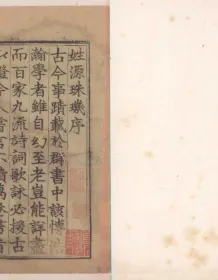 姓源珠璣序
古今事蹟載於群書中該博浩
瀚學者雖自幻至老豈能詳盡
而百家九流詩詞歌詠必援古